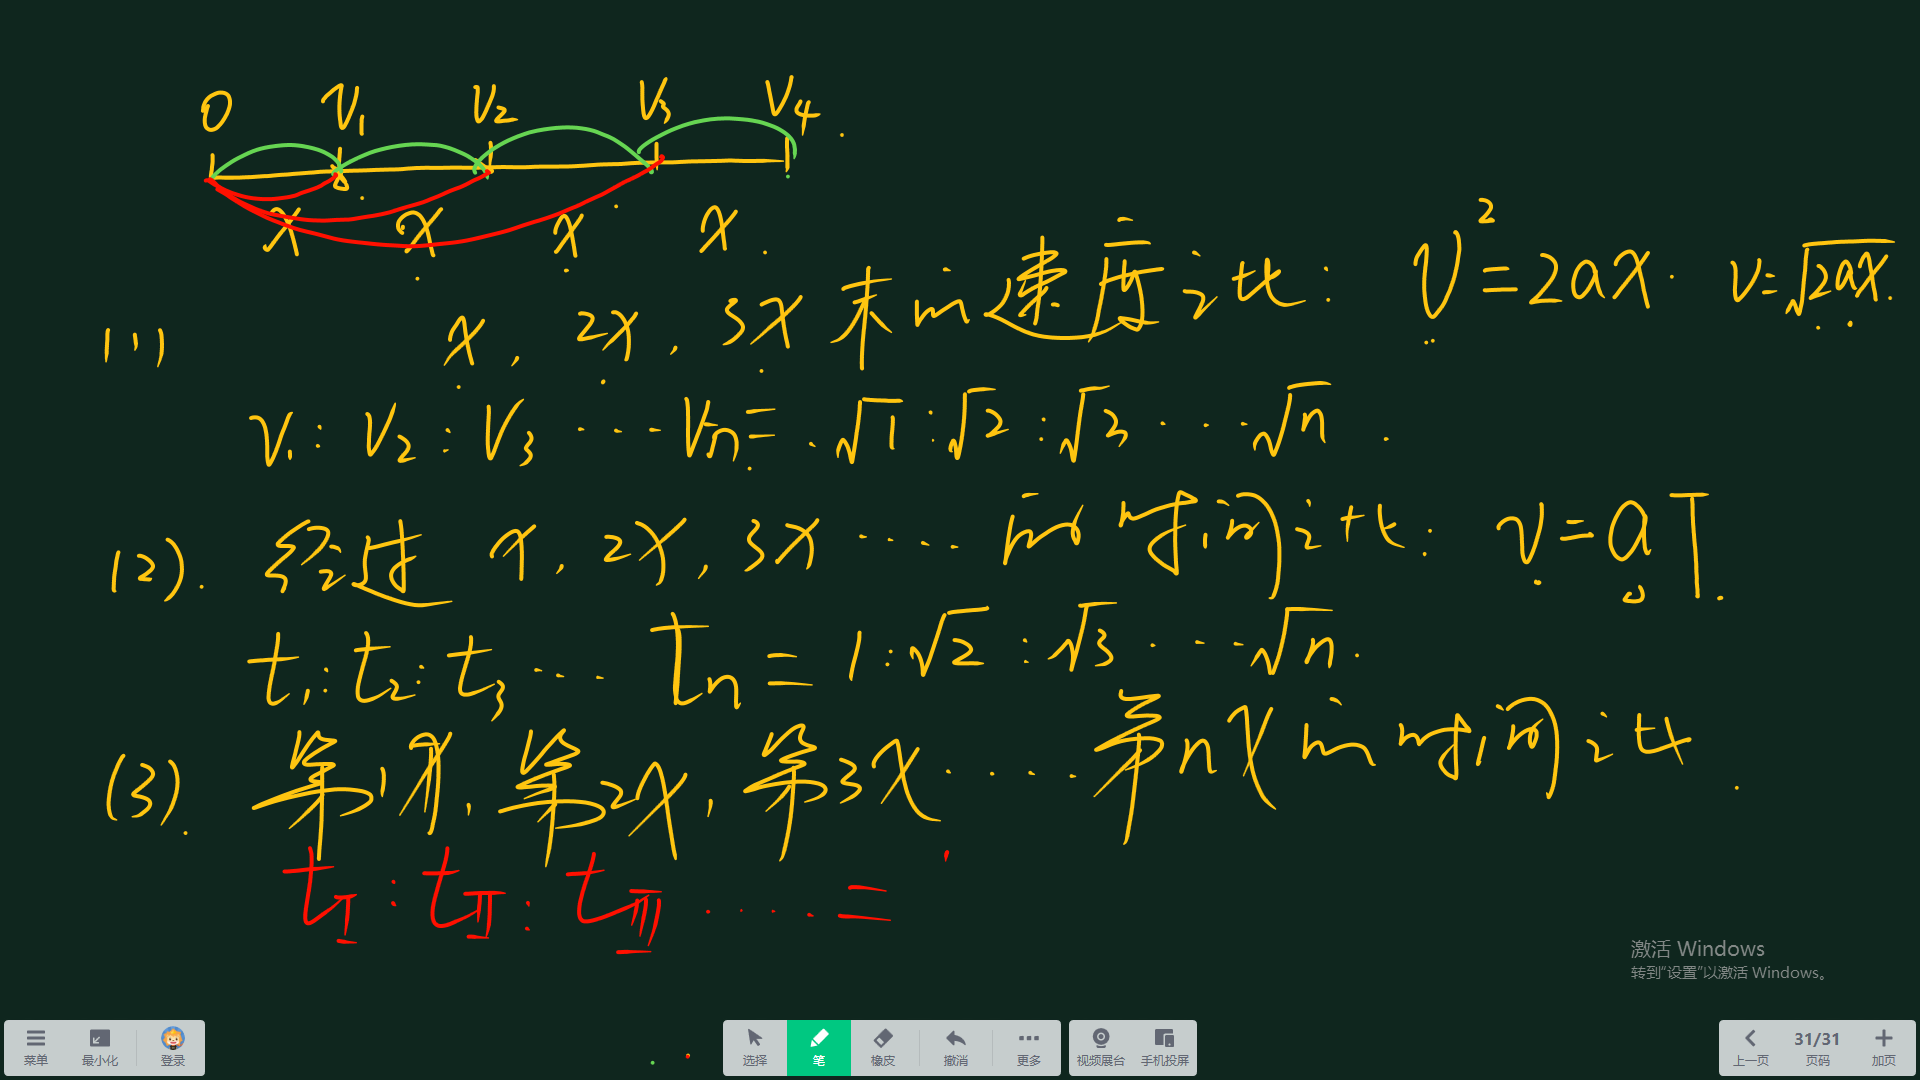 0 V₁ V₂ V₃ V₄
x x x x
(1) x, 2x, 3x 末的速度之比: V²=2ax. V=√2ax.
V₁:V₂:V₃ ⋯ Vn=√1:√2:√3 ⋯ √n.
(2). 经过 x, 2x, 3x ⋯ 的时间之比: v=aT.
t₁:t₂:t₃ ⋯ tn=1:√2:√3 ⋯ √n.
(3). 第1x, 第2x, 第3x ⋯ 第nx的时间之比.
tⅠ:tⅡ:tⅢ ⋯ =
激活 Windows
转到“设置”以激活 Windows。
菜单 最小化 登录 选择 笔 橡皮 撤消 更多 视频展台 手机投屏 上一页 31/31 页码 加页